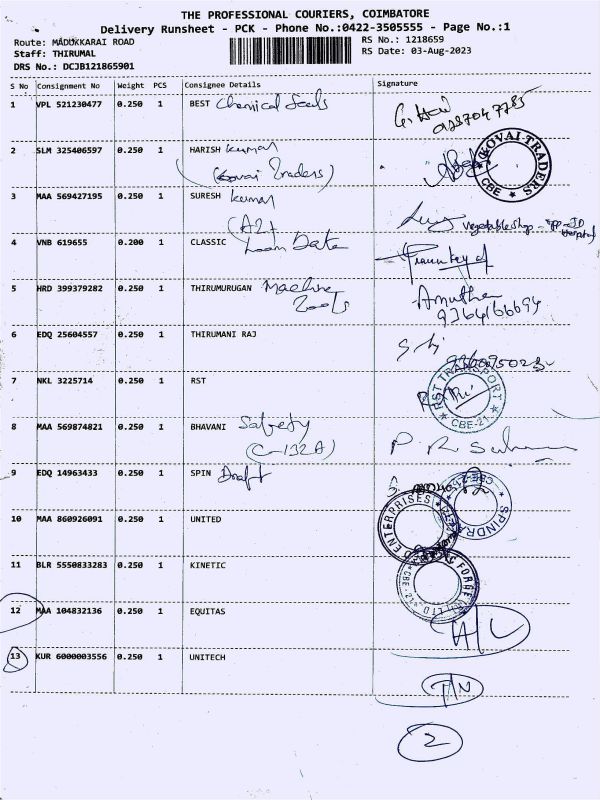 THE PROFESSIONAL COURIERS, COIMBATORE
Delivery Runsheet - PCK - Phone No.:0422-3505555 - Page No.:1
Route: MADUKKARAI ROAD
RS No.: 1218659
Staff: THIRUMAL
RS Date: 03-Aug-2023
DRS No.: DCJB121865901
S No Consignment No Weight PCS Consignee Details Signature
1 VPL 521230477 0.250 1 BEST Chemical Seals
2 SLM 325406597 0.250 1 HARISH Kumar
(Kovai Traders)
KOVAI TRADERS
CBE
3 MAA 569427195 0.250 1 SURESH Kumar
Vegetable shop
4 VNB 619655 0.200 1 CLASSIC Loom Data
5 HRD 399379282 0.250 1 THIRUMURUGAN Machine Tools
9364166694
6 EDQ 25604557 0.250 1 THIRUMANI RAJ
7 NKL 3225714 0.250 1 RST
RST TRANSPORT
CBE-21
8 MAA 569874821 0.250 1 BHAVANI Safety
(C-132A)
9 EDQ 14963433 0.250 1 SPIN Draft
10 MAA 860926091 0.250 1 UNITED
ENTERPRISES
11 BLR 5550833283 0.250 1 KINETIC
12 MAA 104832136 0.250 1 EQUITAS
A/L
13 KUR 6000003556 0.250 1 UNITECH
T/N
2